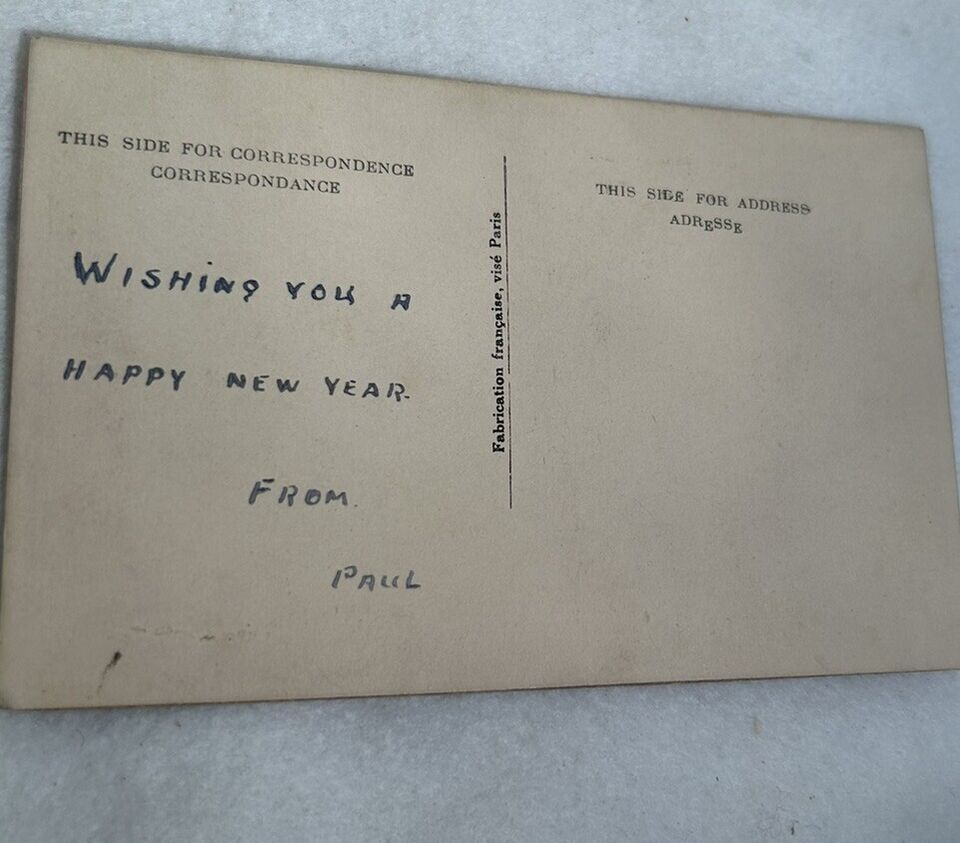 THIS SIDE FOR CORRESPONDENCE
CORRESPONDANCE
WISHiNg YOU A
HAPPY NEW YEAR.
FROM.
PAUL
Fabrication française, visé Paris
THIS SIDE FOR ADDRESS
ADRESSE